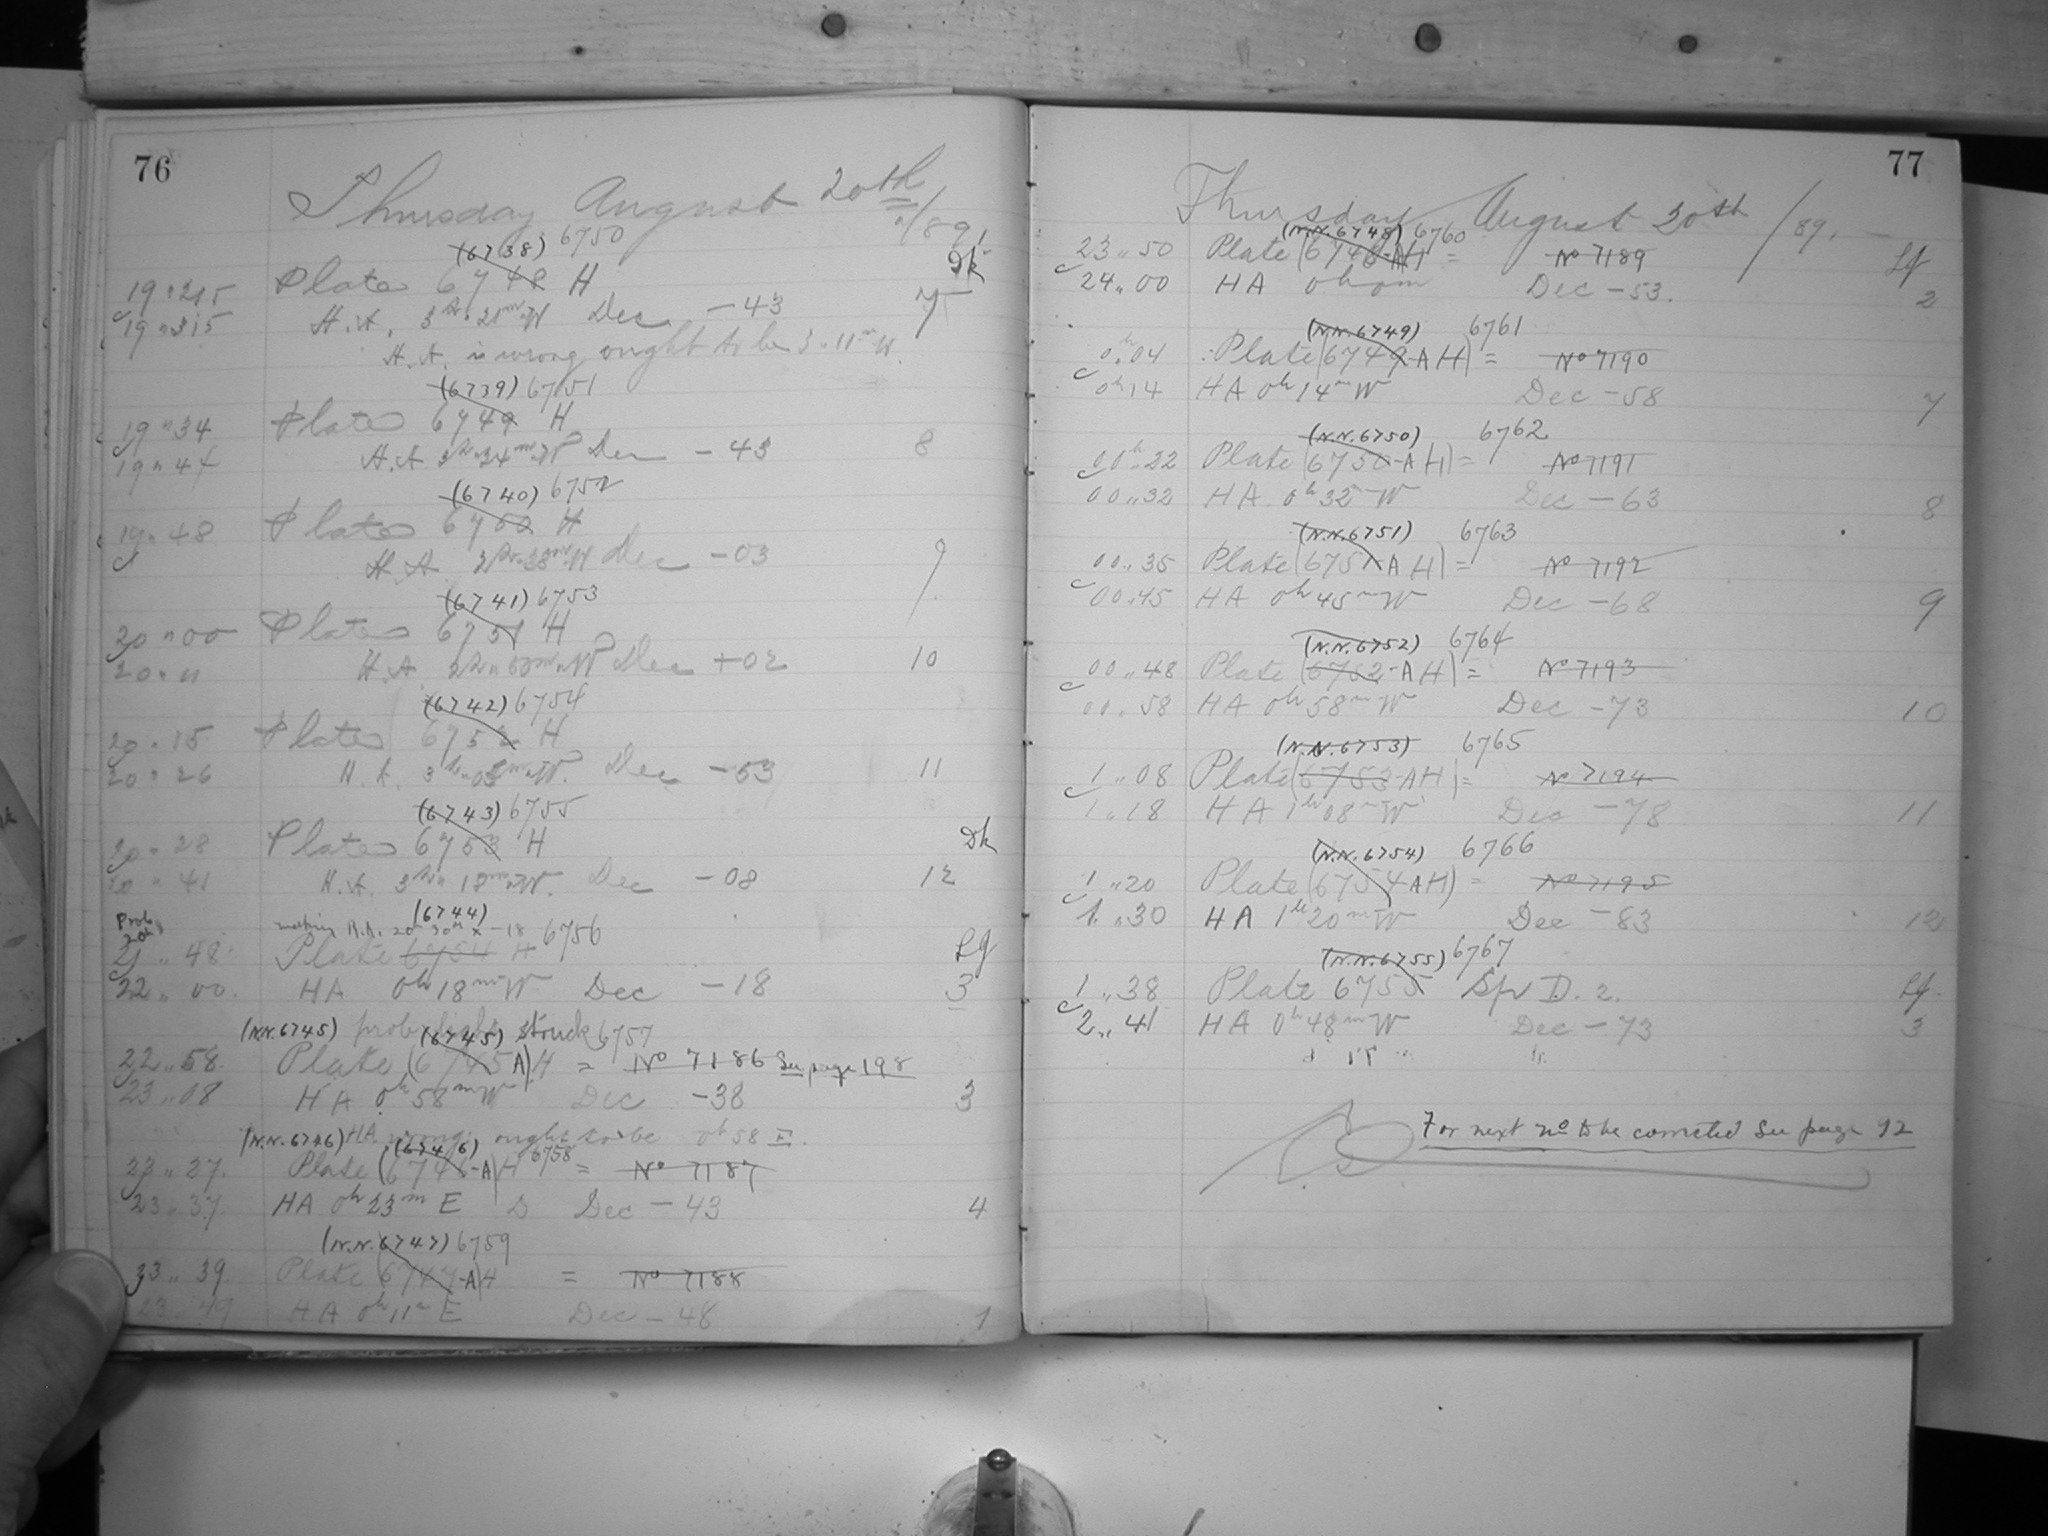 76
Thursday August 20th /89.
(6738) 6750
19 " 21.5 Plate 6748 H Dk
19 " 31.5 H.A. 3h 21m W Dec -43 7
H.A. is wrong ought to be 3 " 11m W.
(6739) 6751
19 " 34 Plate 6749 H
19 " 44 H.A 3h 24m W Dec -43 8
(6740) 6752
19 " 48 Plate 6750 H
H.A. 3h 38m W Dec -03 9
(6741) 6753
20 " 00 Plate 6751 H
20 " 11 H.A. Dec +02 10
(6742) 6754
20 " 15 Plate 6752 H
20 " 26 H.A. 3h 03m W. Dec -53 11
(6743) 6755
20 " 28 Plate 6753 H Dk
20 " 41 H.A. 3h 18m W. Dec -08 12
Prob 20h (6744)
making R.A. 20h 30m x -18 6756
21 " 48 Plate 6754 H Lf
22 " 00. HA 0h 18m W Dec -18 3
(N.N. 6745) prob. light struck 6757
(6745)
22 " 58. Plate (6745 A) H = No 7186 See page 198
23 " 08 HA 0h 58m W Dec -38 3
(N.N. 6746) HA wrong ought to be 0h 58 E.
(6746) 6758
23 " 27. Plate (6746-A) H = No 7187
23 " 37. HA 0h 23m E Dec -43 4
(N.N. 6747) 6759
23 " 39. Plate (6747-A) H = No 7188
23 " 49 HA 0h 11m E Dec -48 1
77
Thursday August 20th /89.
(N.N. 6748) 6760
23 " 50 Plate (6748-AH) = No 7189 Lf
24 " 00 HA 0h 0m Dec -53. 2
(N.N. 6749) 6761
0h 04 Plate (6749-AH) = No 7190
0h 14 HA 0h 14m W Dec -58 7
(N.N. 6750) 6762
00h 22 Plate (6750-AH) = No 7191
00 " 32 HA 0h 32m W Dec -63 8
(N.N. 6751) 6763
00 " 35 Plate (6751-AH) = No 7192
00 " 45 HA 0h 45m W Dec -68 9
(N.N. 6752) 6764
00 " 48 Plate (6752-AH) = No 7193
00 " 58 HA 0h 58m W Dec -73 10
(N.N. 6753) 6765
1 " 08 Plate (6753-AH) = No 7194
1 " 18 HA 1h 08m W Dec -78 11
(N.N. 6754) 6766
1 " 20 Plate (6754 AH) = No 7195
1 " 30 HA 1h 20m W Dec -83 12
(N.N. 6755) 6767
1 " 38 Plate 6755 Spr D. 2. Lf.
2 " 41 HA 0h 48m W Dec -73 3
For next no to be corrected See page 92